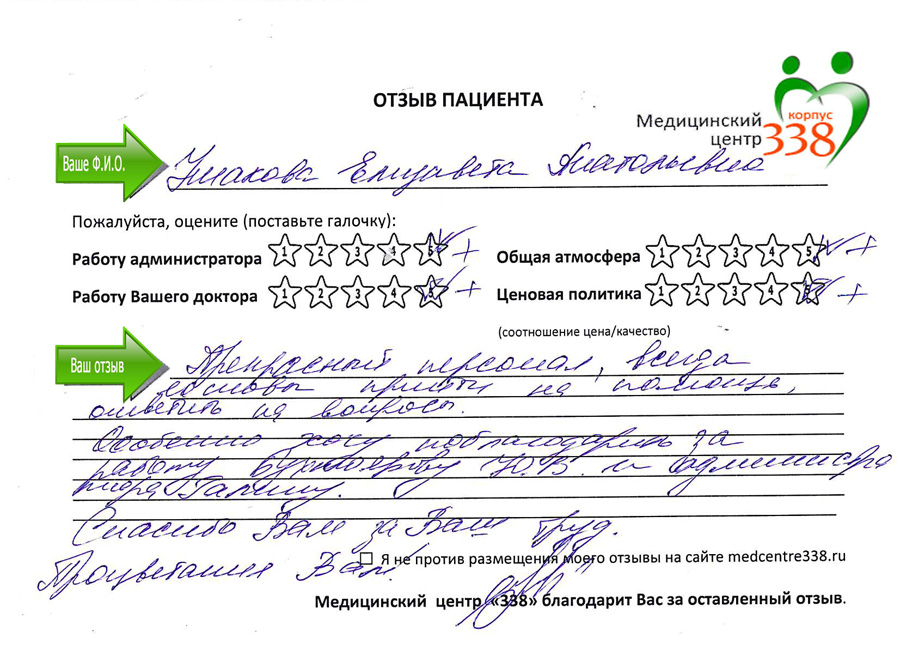 ОТЗЫВ ПАЦИЕНТА
Медицинский центр
корпус
338
Ваше Ф.И.О.
Ушакова Елизавета Анатольевна
Пожалуйста, оцените (поставьте галочку):
Работу администратора 1 2 3 4 5 +
Общая атмосфера 1 2 3 4 5 +
Работу Вашего доктора 1 2 3 4 5 +
Ценовая политика 1 2 3 4 5 +
(соотношение цена/качество)
Ваш отзыв
Прекрасный персонал, всегда
готовы прийти на помощь,
ответить на вопросы.
Особенно хочу поблагодарить за
работу Ю.В. и администра
тора Галину.
Спасибо Вам за Ваш труд.
Процветания Вам!
Я не против размещения моего отзывы на сайте medcentre338.ru
Медицинский центр «338» благодарит Вас за оставленный отзыв.